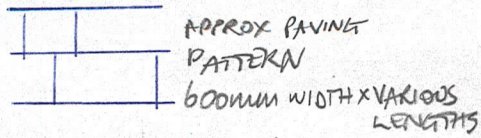 APPROX PAVING
PATTERN
600mm WIDTH X VARIOUS
LENGTHS